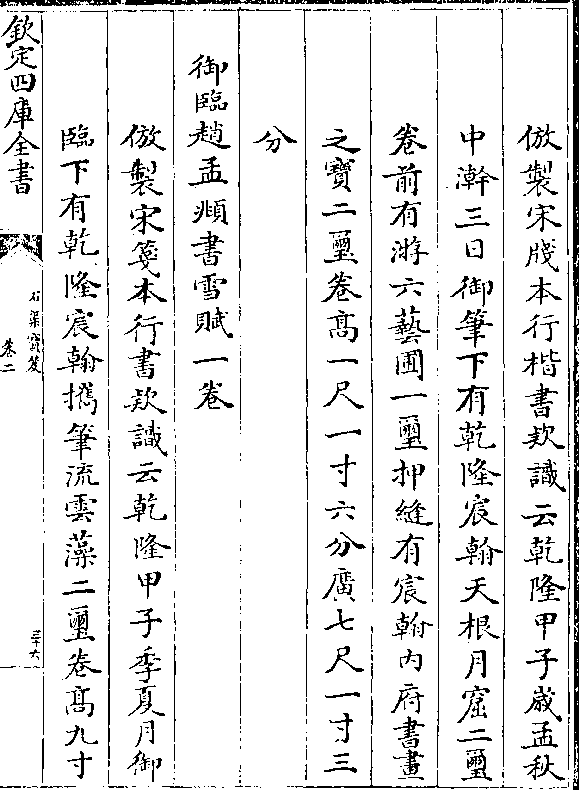 倣製宋牋本行楷書欵識云乾隆甲子嵗孟秋
中澣三日御筆下有乾隆宸翰天根月窟二璽
卷前有游六藝圃一璽押縫有宸翰内府書畫
之寶二璽卷髙一尺一寸六分廣七尺一寸三
分
御臨趙孟頫書雪賦一卷
倣製宋箋本行書欵識云乾隆甲子季夏月御
臨下有乾隆宸翰擕筆流雲藻二璽卷髙九寸
欽定四庫全書
石渠寳笈
卷二
三十六